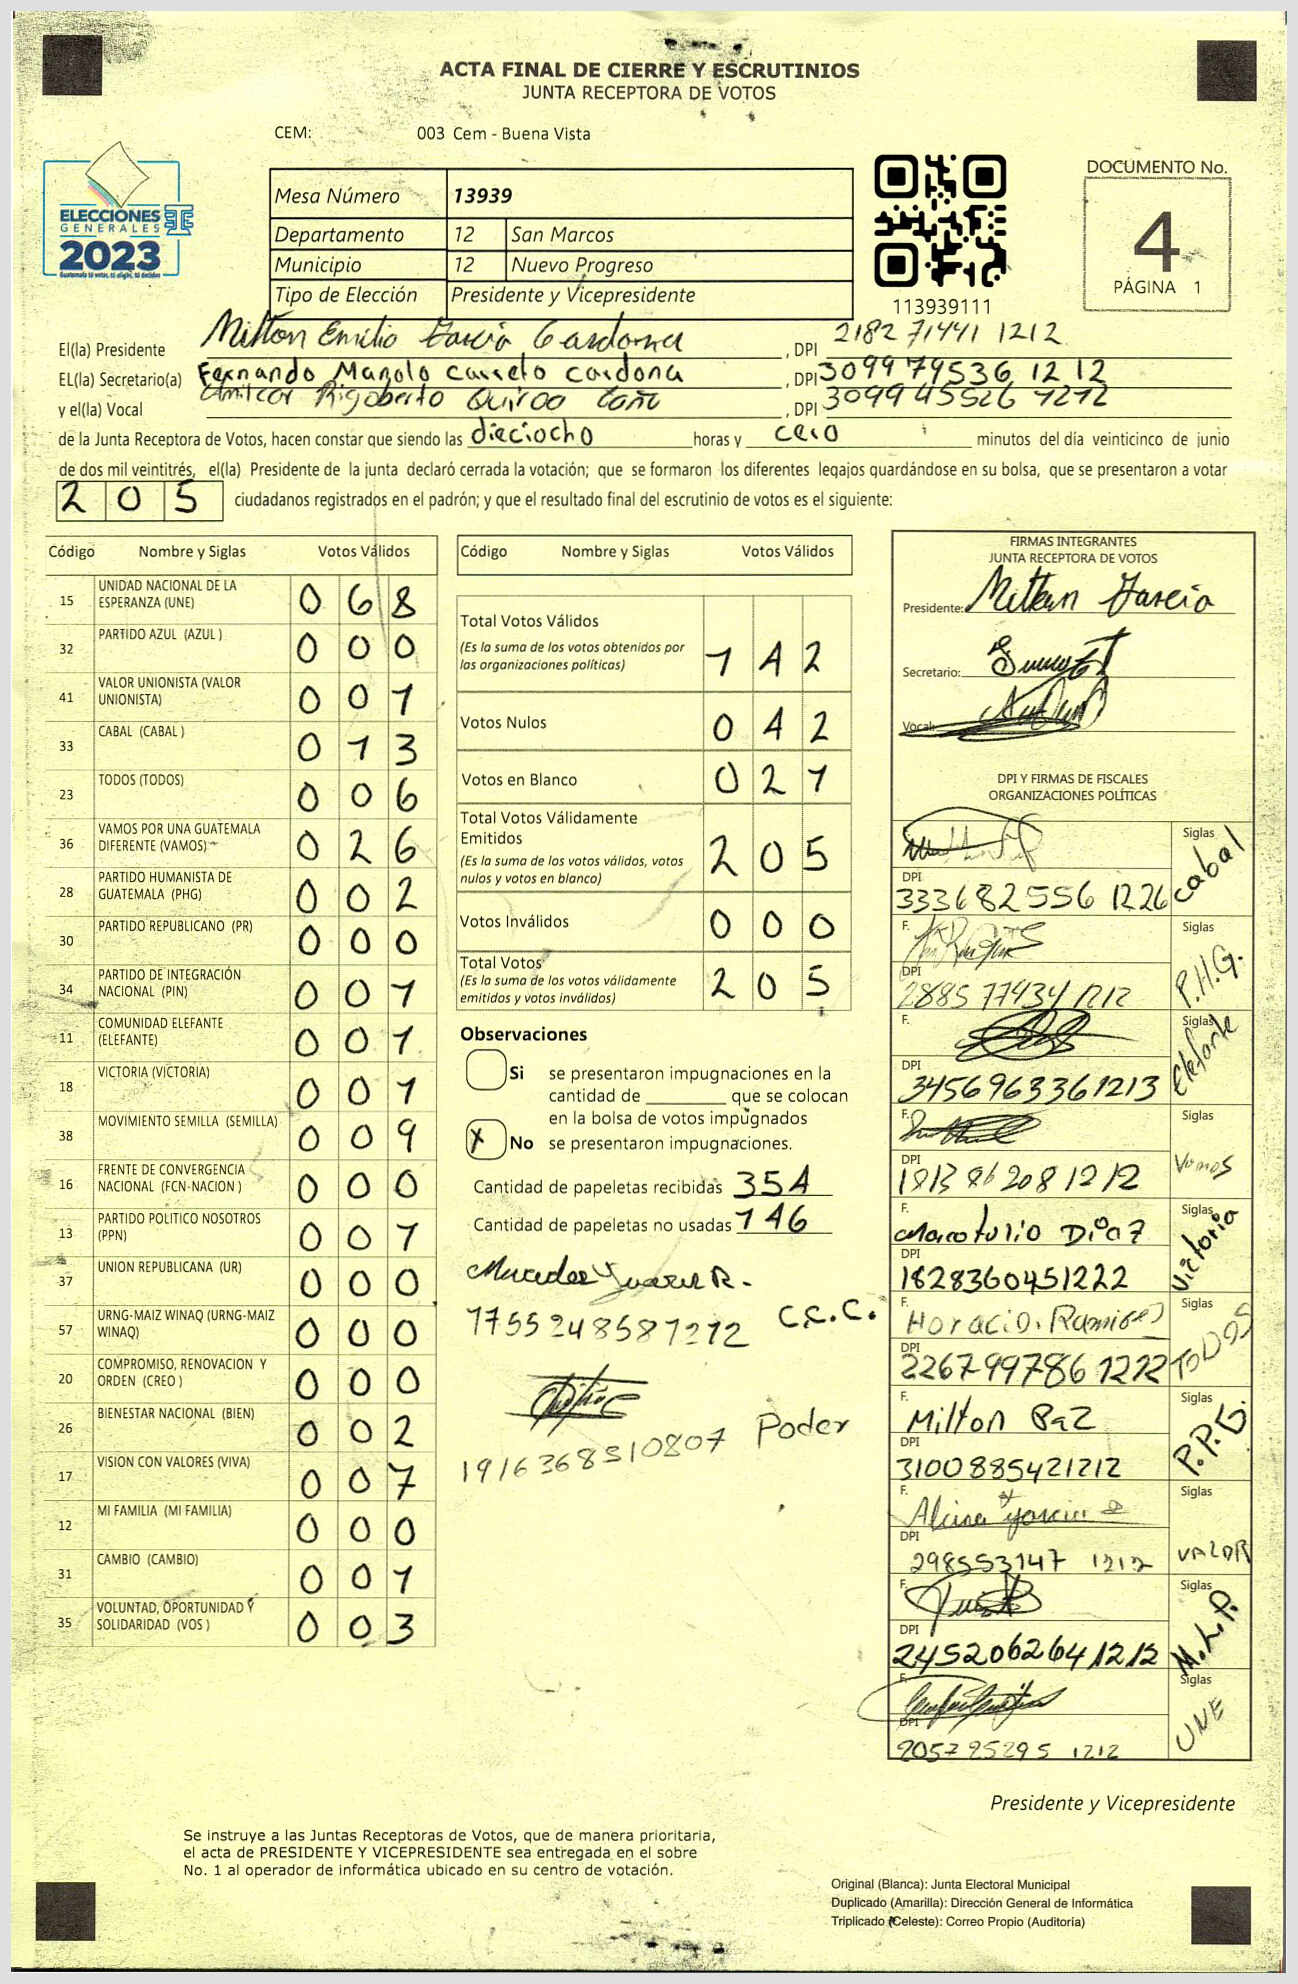 ACTA FINAL DE CIERRE Y ESCRUTINIOS
JUNTA RECEPTORA DE VOTOS
CEM: 003 Cem - Buena Vista
ELECCIONES
GENERALES
2023
Mesa Número 13939
Departamento 12 San Marcos
Municipio 12 Nuevo Progreso
Tipo de Elección Presidente y Vicepresidente
113939111
DOCUMENTO No.
4
PÁGINA 1
El(la) Presidente Milton Emilio García Cardona , DPI 2182 71441 1212
EL(la) Secretario(a) Fernando Manolo Carreto Cardona , DPI 3099 79536 1212
y el(la) Vocal Rigoberto , DPI 3099 45526 1212
de la Junta Receptora de Votos, hacen constar que siendo las dieciocho horas y cero minutos del día veinticinco de junio
de dos mil veintitrés, el(la) Presidente de la junta declaró cerrada la votación; que se formaron los diferentes legajos guardándose en su bolsa, que se presentaron a votar
205 ciudadanos registrados en el padrón; y que el resultado final del escrutinio de votos es el siguiente:
Código Nombre y Siglas Votos Válidos
15 UNIDAD NACIONAL DE LA ESPERANZA (UNE) 068
32 PARTIDO AZUL (AZUL ) 000
41 VALOR UNIONISTA (VALOR UNIONISTA) 001
33 CABAL (CABAL ) 013
23 TODOS (TODOS) 006
36 VAMOS POR UNA GUATEMALA DIFERENTE (VAMOS) 026
28 PARTIDO HUMANISTA DE GUATEMALA (PHG) 002
30 PARTIDO REPUBLICANO (PR) 000
34 PARTIDO DE INTEGRACIÓN NACIONAL (PIN) 001
11 COMUNIDAD ELEFANTE (ELEFANTE) 001
18 VICTORIA (VICTORIA) 001
38 MOVIMIENTO SEMILLA (SEMILLA) 009
16 FRENTE DE CONVERGENCIA NACIONAL (FCN-NACION ) 000
13 PARTIDO POLITICO NOSOTROS (PPN) 001
37 UNION REPUBLICANA (UR) 000
57 URNG-MAIZ WINAQ (URNG-MAIZ WINAQ) 000
20 COMPROMISO, RENOVACION Y ORDEN (CREO ) 000
26 BIENESTAR NACIONAL (BIEN) 002
17 VISION CON VALORES (VIVA) 007
12 MI FAMILIA (MI FAMILIA) 000
31 CAMBIO (CAMBIO) 001
35 VOLUNTAD, OPORTUNIDAD Y SOLIDARIDAD (VOS ) 003
Código Nombre y Siglas Votos Válidos
Total Votos Válidos
(Es la suma de los votos obtenidos por
las organizaciones políticas) 142
Votos Nulos 042
Votos en Blanco 021
Total Votos Válidamente
Emitidos
(Es la suma de los votos válidos, votos
nulos y votos en blanco) 205
Votos Inválidos 000
Total Votos
(Es la suma de los votos válidamente
emitidos y votos inválidos) 205
Observaciones
Si se presentaron impugnaciones en la
cantidad de ________ que se colocan
en la bolsa de votos impugnados
X No se presentaron impugnaciones.
Cantidad de papeletas recibidas 354
Cantidad de papeletas no usadas 146
1755248587212 C.C.C.
1916368510807 Poder
FIRMAS INTEGRANTES
JUNTA RECEPTORA DE VOTOS
Presidente: Milton García
Secretario:
Vocal:
DPI Y FIRMAS DE FISCALES
ORGANIZACIONES POLÍTICAS
Siglas Cabal
DPI
333682556 1226
F. Siglas P.H.G.
DPI
2885 77434 1212
F. Siglas Elefante
DPI
3456963361213
F. Siglas Vamos
DPI
1813 86208 1212
F. Marotulio Díaz Siglas Victoria
DPI
1828360451222
F. Horacio. Ramirez Siglas TODOS
DPI
2267997861212
F. Milton Paz Siglas P.P.G.
DPI
3100885421212
F. Siglas VALOR
DPI
298553147 1212
F. Siglas M.L.P.
DPI
2452062641212
F. Siglas UNE
DPI
205725295 1212
Presidente y Vicepresidente
Se instruye a las Juntas Receptoras de Votos, que de manera prioritaria,
el acta de PRESIDENTE Y VICEPRESIDENTE sea entregada en el sobre
No. 1 al operador de informática ubicado en su centro de votación.
Original (Blanca): Junta Electoral Municipal
Duplicado (Amarilla): Dirección General de Informática
Triplicado (Celeste): Correo Propio (Auditoría)